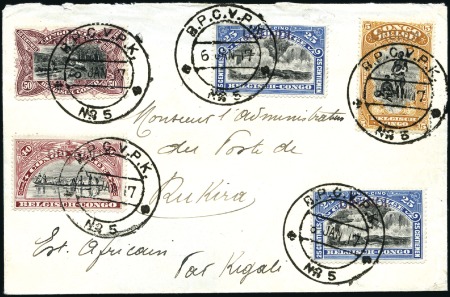 B.P.C.V.P.K.
Nº 5
50
B.P.C.V.P.K.
6 JAN 17
Nº 5
25 CENTIMES
25
BELGISCH-CONGO
CONGO BELGE
B.P.C.V.P.K.
Nº 5
Monsieur l'administrateur
du Poste de
Rukira
B.P.C.V.P.K.
Nº 5
BELGISCH-CONGO
B.P.C.V.P.K.
JAN 17
Nº 5
25 CENTIMES
25
BELGISCH-CONGO
Est Africain
Par Kigali